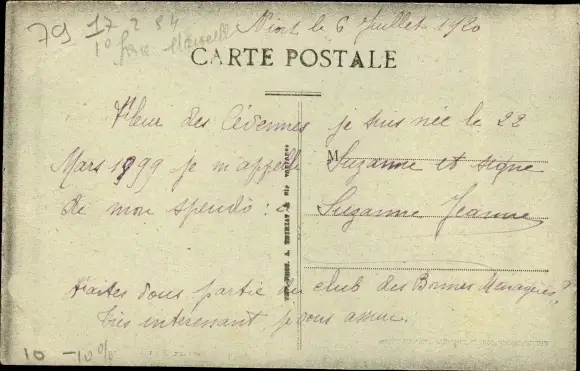 79 17 2 84
Niort le 6 Juillet 1920
CARTE POSTALE
Fleur des Cévennes je suis née le 22
Mars 1999 je m'appelle Suzanne et signe
M
de mon speudo : Suzanne Jeanne
Faites vous partie du club des Bonnes Menagères?
très interessant je vous assure.
10 -10%